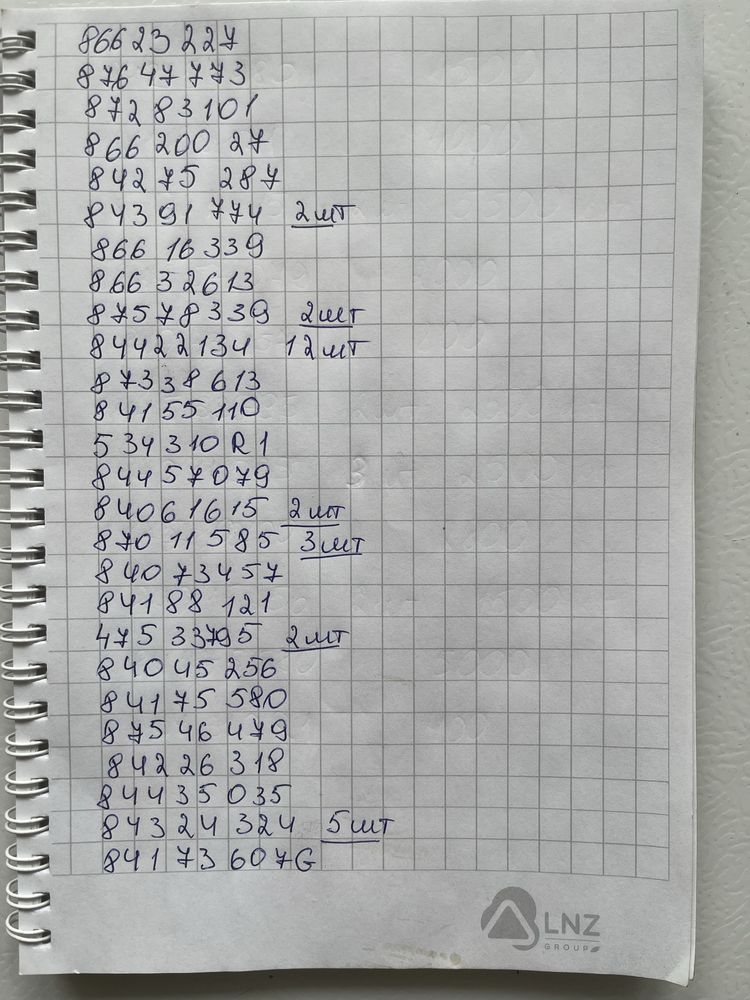 86623227
87647773
87283101
86620027
84275287
84391774 2шт
86616339
86632613
87578339 2шт
84422134 12шт
87338613
84155110
534310R1
84457079
84061615 2шт
87011585 3шт
84073457
84188121
47533795 2шт
84045256
84175580
87546479
84226318
84435035
84324324 5шт
84173607G
LNZ
GROUP